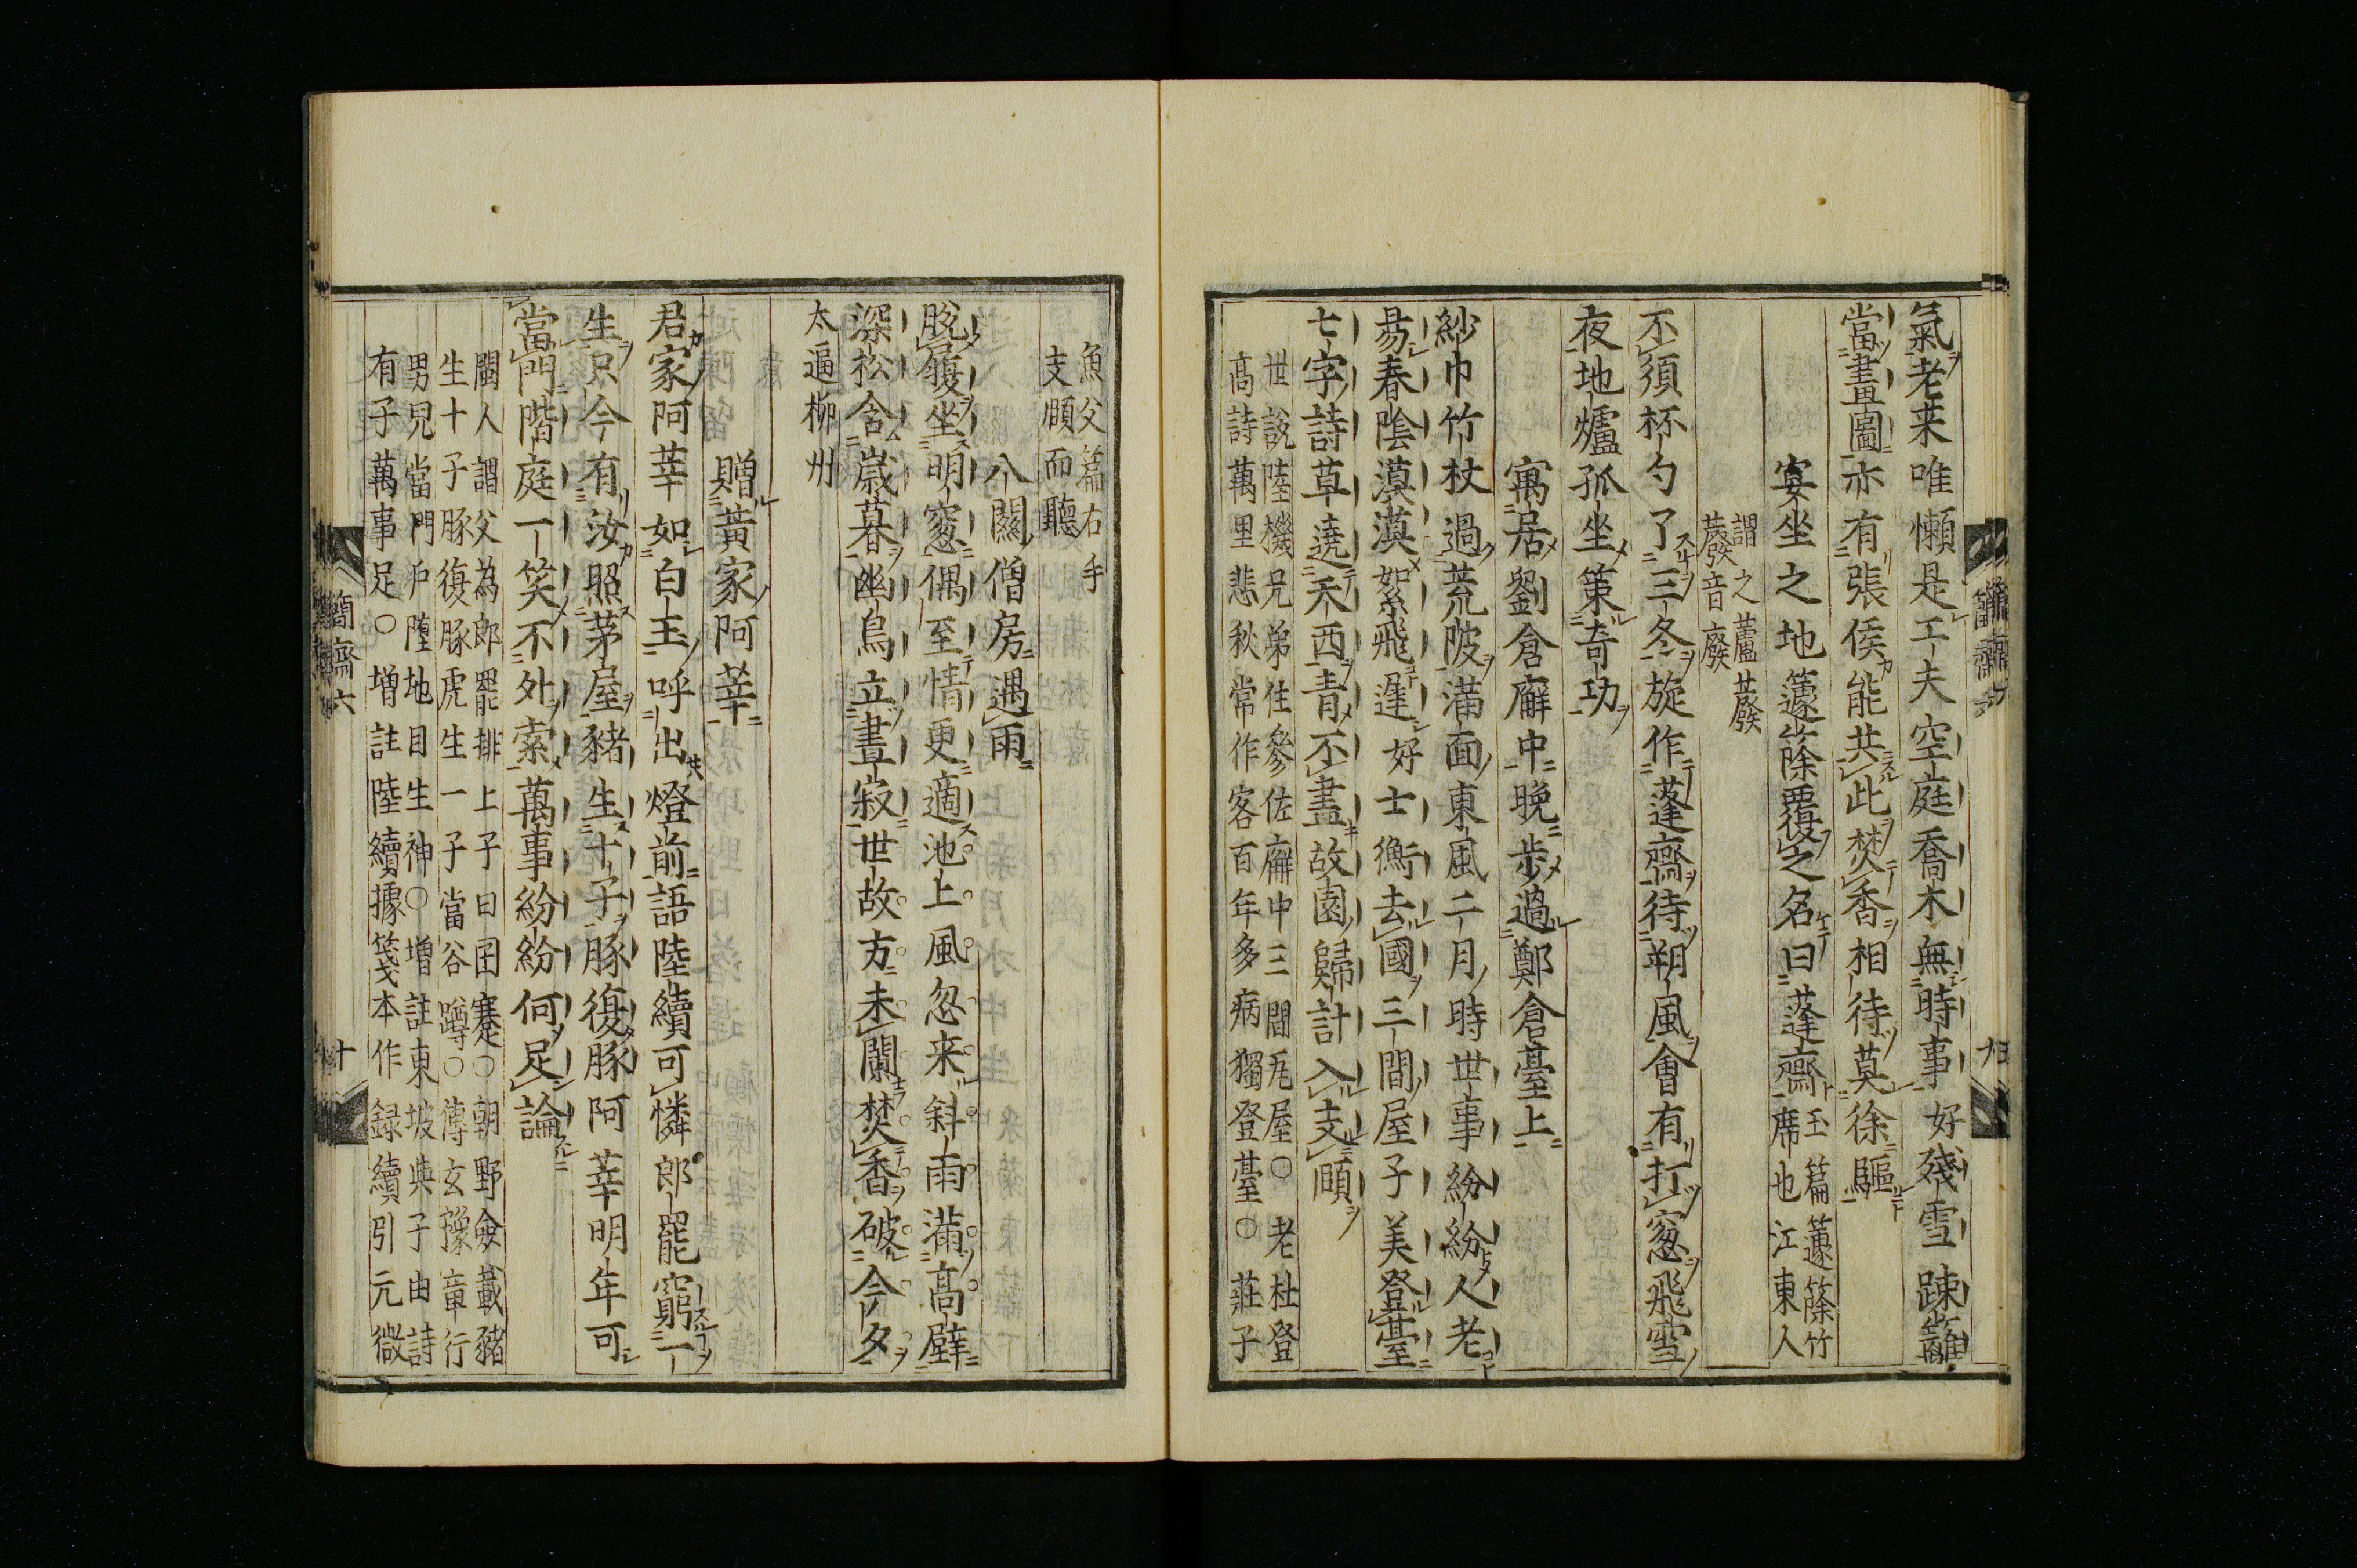 氣老来唯懶是工夫空庭喬木無時事好殘雪踈籬
當畫圖亦有張侯能共此焚香相待莫徐驅
宴坐之地籧篨覆之名曰蓬齋
玉篇籧篨竹
席也江東人
謂之蘆䕠
䕠音廢
不須杯勺了三冬旋作蓬齋待朔風會有打窓飛雪
夜地爐孤坐策奇功
寓居劉倉廨中晚步過鄭倉臺上
紗巾竹杖過荒陂滿面東風二月時世事紛紛人老
易春陰漠漠絮飛遲好士衡去國三間屋子美登臺
七字詩草遶天西青不盡故園歸計入支頤
世說陸機兄弟住參佐廨中三間瓦屋○老杜登
髙詩萬里悲秋常作客百年多病獨登臺○莊子
簡齋六
魚父篇右手
支頤而聽
八關僧房遇雨
脫履坐明窓偶至情更適池上風忽来斜雨滿髙壁
深松含歳暮幽鳥立晝寂世故方未闌焚香破今夕
太逼柳州
贈黃家阿莘
君家阿莘如白玉呼出燈前語陸續可憐郎罷窮一
生只今有汝照茅屋豬生十子豚復豚阿莘明年可
當門階庭一笑不外索萬事紛紛何足論
閩人謂父為郎罷排上子曰囝蹇○朝野僉載豬
生十子豚復豚虎生一子當谷蹲○薄玄豫章行
男兒當門戶墮地自生神○増註東坡與子由詩
有子萬事足○増註陸續據箋本作録續引元微
簡齋六
十